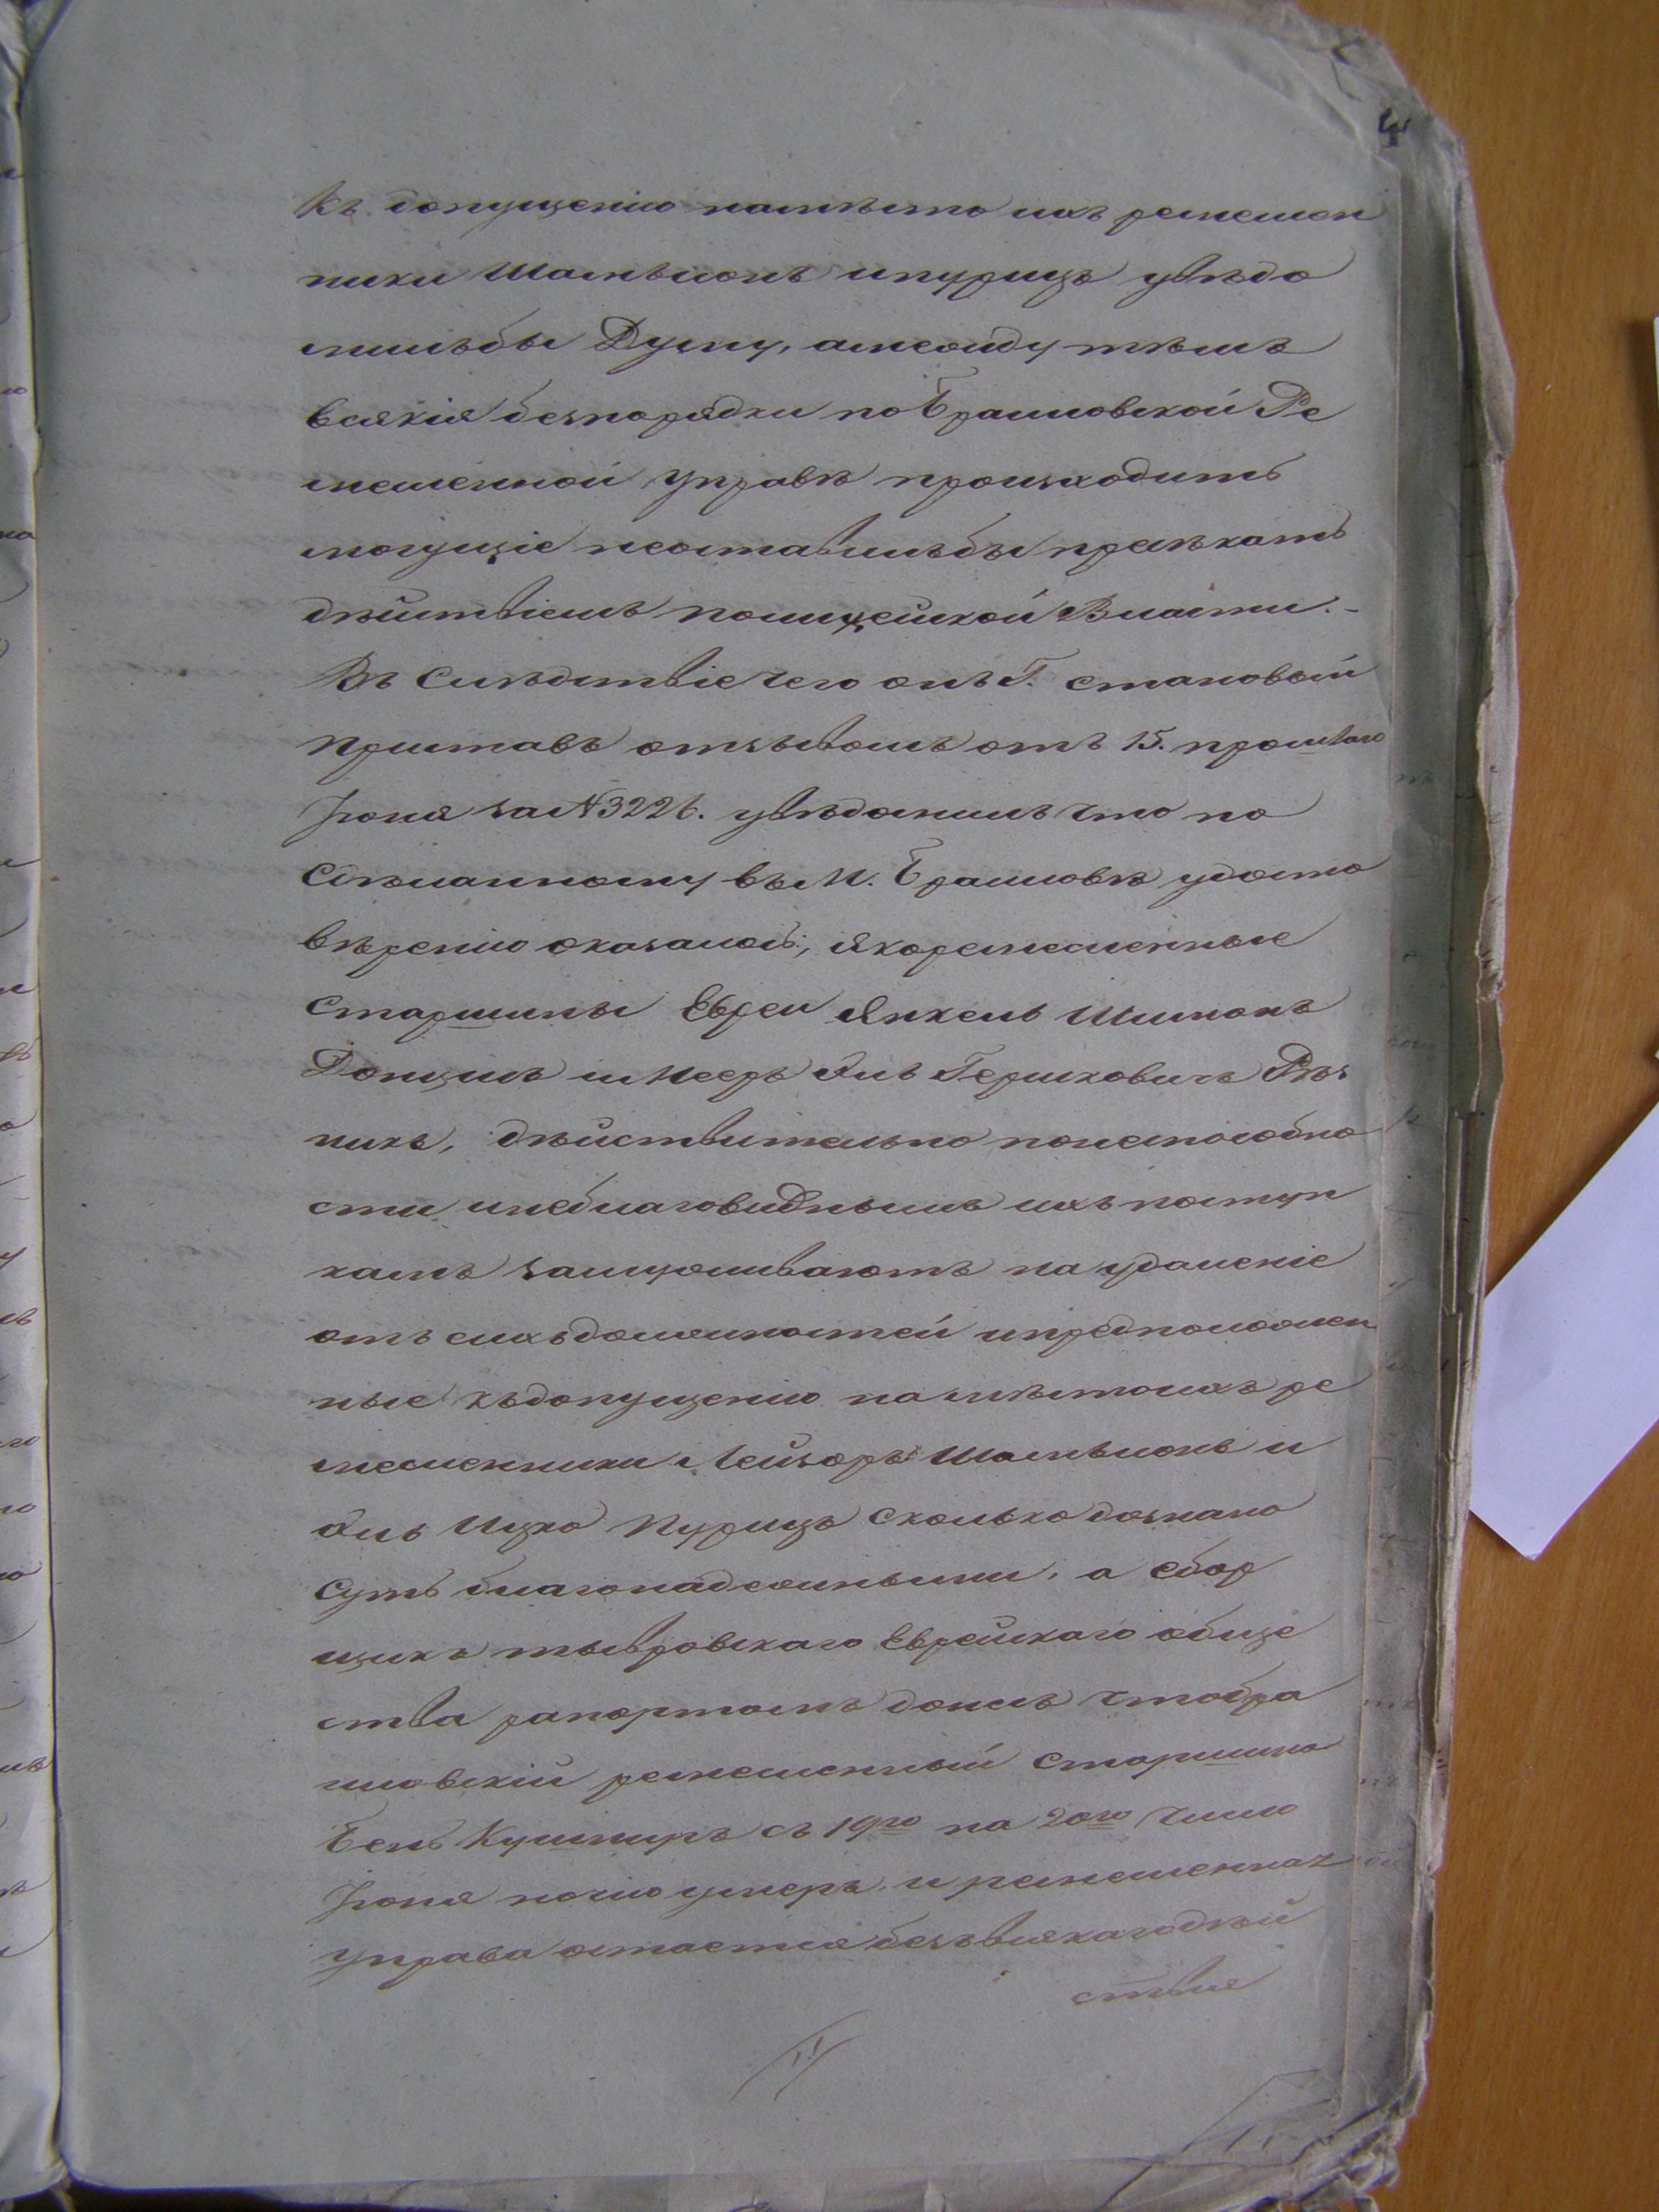 3
къ допущенію намѣсто ихъ ремеслен
ники Шамѣлонъ ипурицъ увѣдо
милъбы Думу, амежду тѣмъ
всякія безпорядки по Браиловской Ре
месленной управѣ происходить
могущіе неоставилъбы пресѣкать
дѣйствіемъ полицейской Власти.-
Въ Слѣдствіе чего онъ Г. становый
приставъ отзывомъ отъ 15. прошлаго
Іюня за N 3226. увѣдомилъ что по
Сдѣланному въ М. Браиловѣ удосто
вѣренію оказалось, якоремесленные
Старшины Евреи Янкель Шимонъ
Донцисъ и Мееръ Аль Гершковичъ Рѣз
никъ, дѣйствительно понеспособно
сти инеблаговиднымъ ихъ поступ
камъ заслуживаютъ на удаленіе
отъ сихъ должностей ипредположен
ные къдопущенію на мѣсто ихъ ре
месленники Лейзоръ Шамѣлонъ и
Аль Ицко Пурицъ сколько дознано
суть благонадежными, а сбор
щикъ тывровскаго Еврейскаго обще
ства рапортомъ донесъ чтобра
иловскій ремесленный Старшина
Бенъ Кушниръ съ 19го на 20го число
Іюня ночю умеръ и ремесленная
управа остается безъвсякагодѣй
ствія